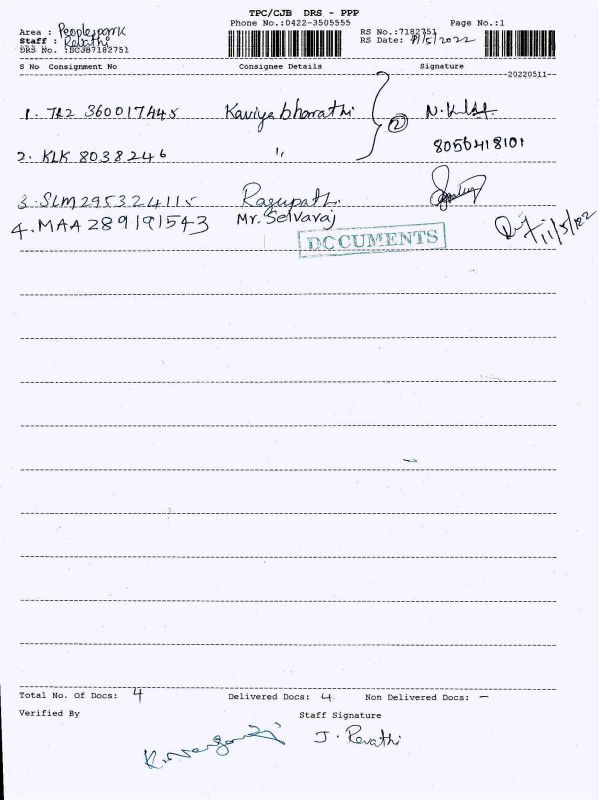 TPC/CJB DRS - PPP
Phone No.:0422-3505555
Page No.:1
Area : Peoplespark
Staff : Revathi
DRS No. :DCJB7182751
RS No.:7182751
RS Date: 11/5/2022
S No Consignment No Consignee Details Signature
20220511
1. TR2 360017445 Kaviya bharathi 2
8056418101
2. KLK 8038246 "
3. SLM295324115 Ragupathi
4. MAA 289191543 Mr. Selvaraj
11/5/22
DOCUMENTS
Total No. Of Docs: 4 Delivered Docs: 4 Non Delivered Docs: -
Verified By Staff Signature
J. Revathi